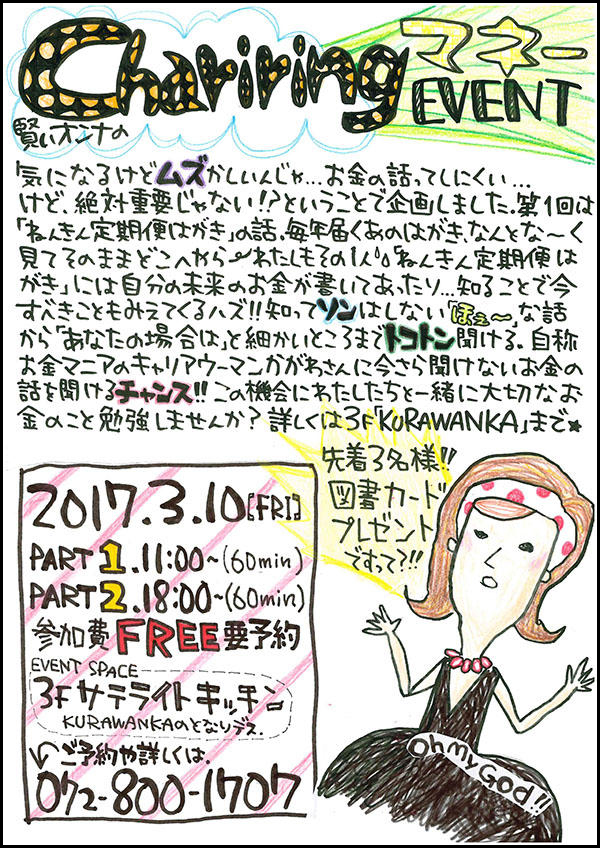 Chariring マネー
EVENT
賢いオンナの
気になるけどムズかしいんじゃ…お金の話ってしにくい…
けど、絶対重要じゃない!?ということで企画しました。第1回は
「ねんきん定期便はがき」の話。毎年届くあのはがき、なんとな〜く
見てそのままどこへやら〜わたしもその1人。「ねんきん定期便は
がき」には自分の未来のお金が書いてあったり…知ることで今
すべきこともみえてくるハズ!!知ってソンはしない「ほぇ〜」な話
から「あなたの場合は」と細かいところまでトコトン聞ける。自称
お金マニアのキャリアウーマンかがわさんに今さら聞けないお金の
話を聞けるチャンス!!この機会にわたしたちと一緒に大切なお
金のこと勉強しませんか?詳しくは3F「KURAWANKA」まで★
先着3名様!!
図書カード
プレゼント
ですって?!!
2017.3.10[FRI]
PART1.11:00~(60min)
PART2.18:00~(60min)
参加費FREE要予約
EVENT SPACE
3Fサテライトキッチン
KURAWANKAのとなりデス。
ご予約や詳しくは、
072-800-1707
Oh My GOD!!